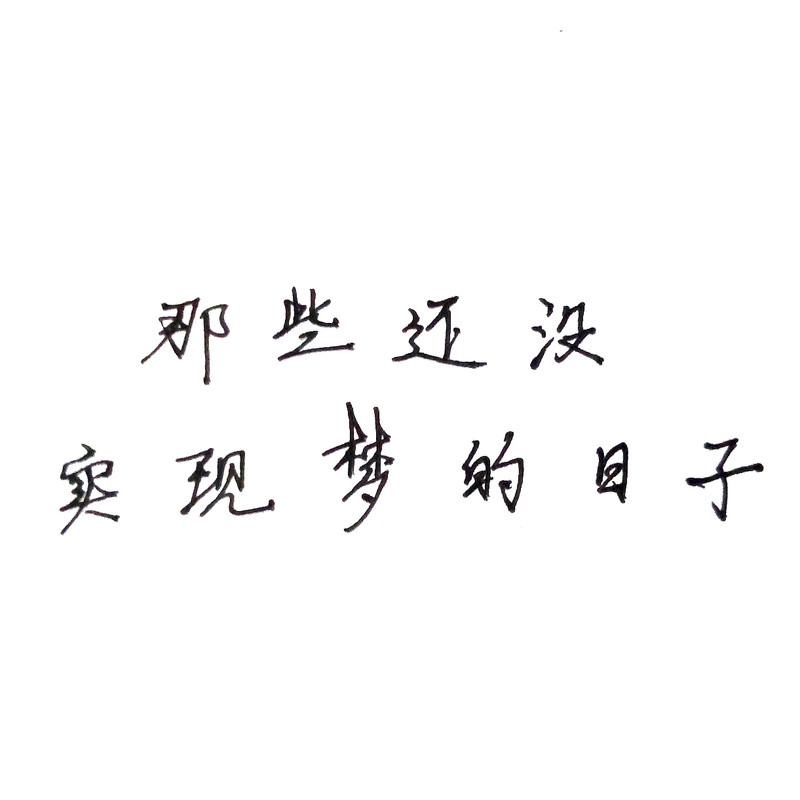 那些还没
实现梦的日子